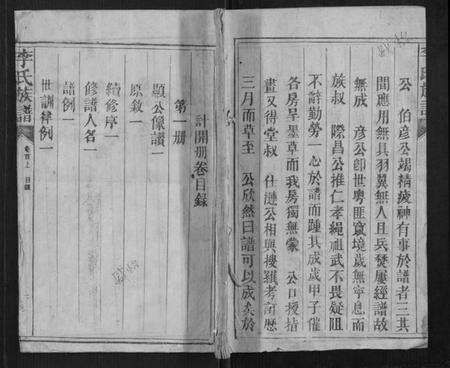 公 伯彥公竭精疲神有事於譜者三其
間應用無具羽翼無人且兵燹屢經譜故
無成 彥公卽世粵匪竄境歲無寧息而
族叔 際昌公推仁孝繩祖武不畏疑阻
不辭勤勞一心於譜而踵其成歲甲子催
各房呈墨草而我房獨無蒙 公口授指
畫又得堂叔 仕漣公相與摟羅考訂歷
三月而草至 公欣然曰譜可以成矣於
計開冊卷目錄
第一冊
題公像讚一
原敘一
續修序一
修譜人名一
譜例一
世訓律例一
李氏族譜
卷首上 目錄
李氏族譜